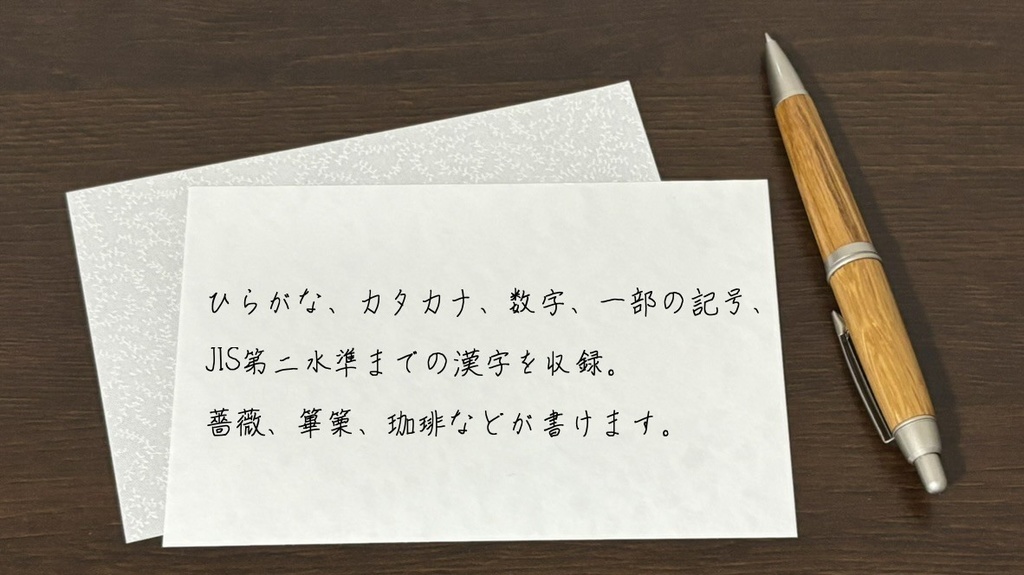 ひらがな、カタカナ、数字、一部の記号、
JIS第二水準までの漢字を収録。
薔薇、篳篥、珈琲などが書けます。